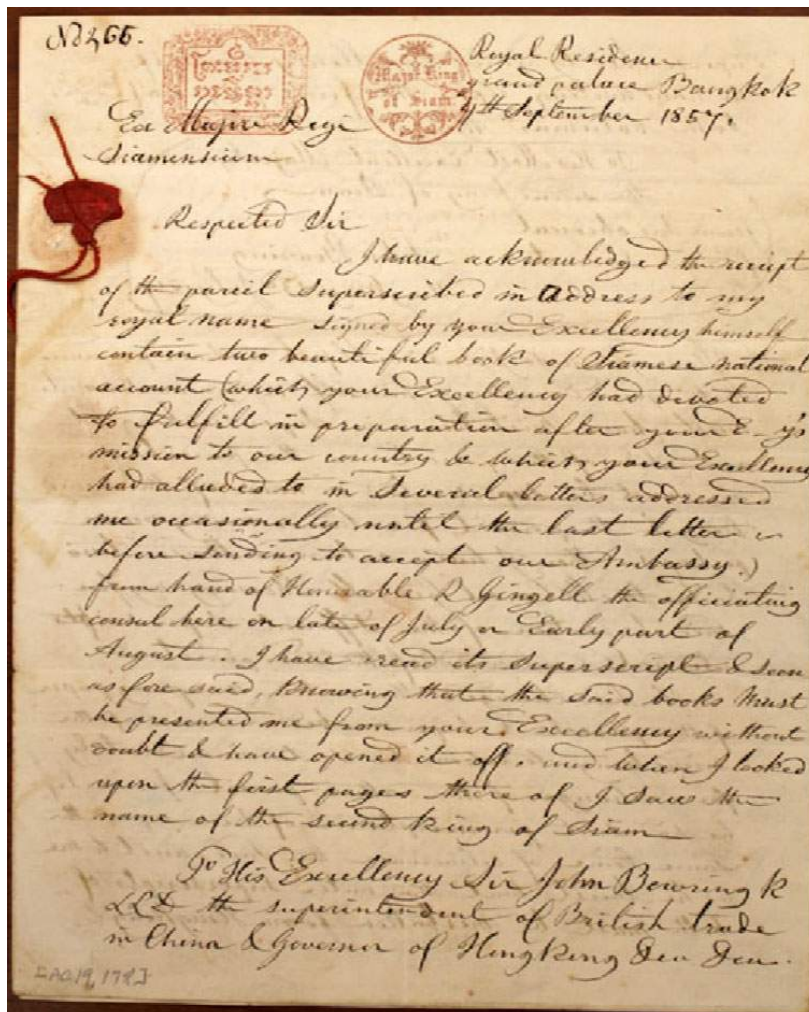 No 66.
Major King
of Siam
Royal Residence
Grand palace Bangkok
4th September 1857.
Ex Majore Regi
Siamensium
Respected Sir
I have acknowledged the receipt
of the parcil superscribed in address to my
royal name signed by your Excellency himself
contain two beautiful book of Siamese national
account (which your Excellency had devoted
to fulfill in preparation after your E-y's
mission to our country & which your Excellency
had alluded to in several letters addressed
me occasionally until the last letter
before sending to accept our Ambassy.)
from hand of Honorable R Gingell the officiating
consul here on late of July or Early part of
August. I have read its superscript & soon
as fore said, Knowing that the said books must
be presented me from your Excellency without
doubt & have opened it off. and when I looked
upon the first pages there of I saw the
name of the second King of Siam
To His Excellency Sir John Bowring K
LLD th superintendent of British trade
in China & Governor of Hongkong &ca &ca.